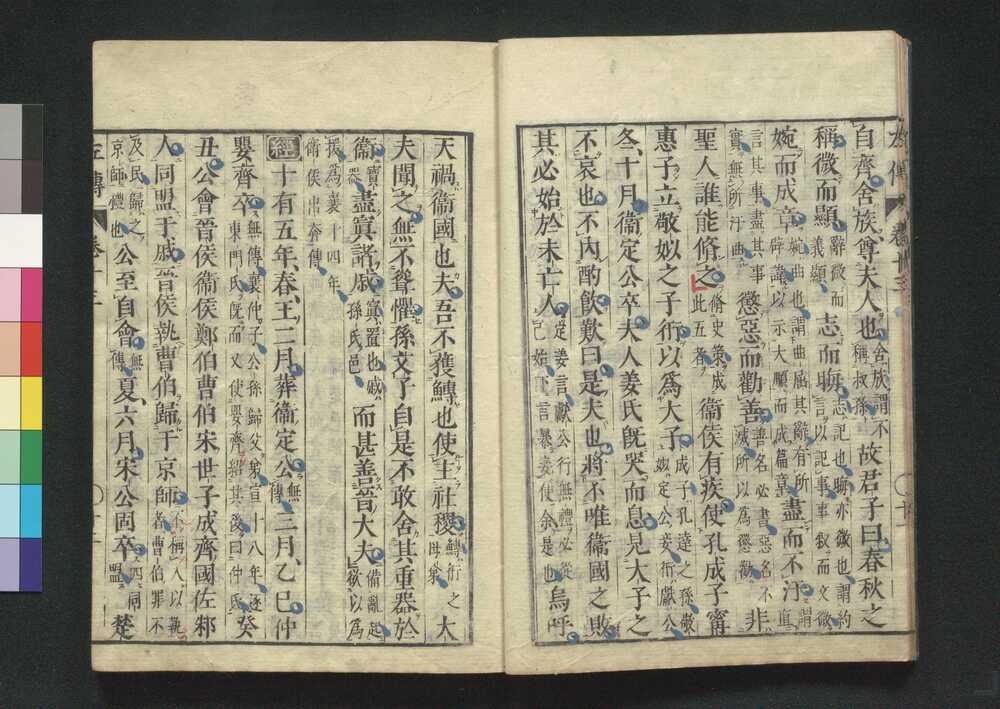 自齊舍族尊夫人也舍族謂不稱叔孫故君子曰春秋之
稱微而顯辭微而義顯志而晦志記也晦亦微也謂約言以記事事敘而文微
婉而成章婉曲也謂曲屈其辭有所辟諱以示大順而成篇章盡而不汙謂直
言其事盡其事實無所汙曲懲惡而勸善善名必書惡名不滅所以為懲勸非
聖人誰能脩之脩史策成此五者衞侯有疾使孔成子甯
惠子立敬姒之子衎以為大子成子孔達之孫敬姒定公妾衎獻公
冬十月衞定公卒夫人姜氏旣哭而息見大子之
不哀也不內酌飮歎曰是夫也將不唯衞國之敗
其必始於未亡人定姜言獻公行無禮必從己始下言暴妾使余是也烏呼
天禍衞國也夫吾不獲鱄也使主社稷鱄衎之母弟大
夫聞之無不聳懼孫文子自是不敢舍其重器於
衞寶器盡寘諸戚寘置也戚孫氏邑而甚善晉大夫備亂起欲以為
援為襄十四年衞侯出奔傳
經十有五年春王二月葬衞定公無傳三月乙巳仲
嬰齊卒無傳襄仲子公孫歸父弟宣十八年逐東門氏旣而又使嬰齊紹其後曰仲氏癸
丑公會晉侯衞侯鄭伯曹伯宋世子成齊國佐邾
人同盟于戚晉侯執曹伯歸于京師不稱人以執者曹伯罪不
及民歸之京師禮也公至自會無傳夏六月宋公固卒四同盟楚
左傳 卷十三 〇十二